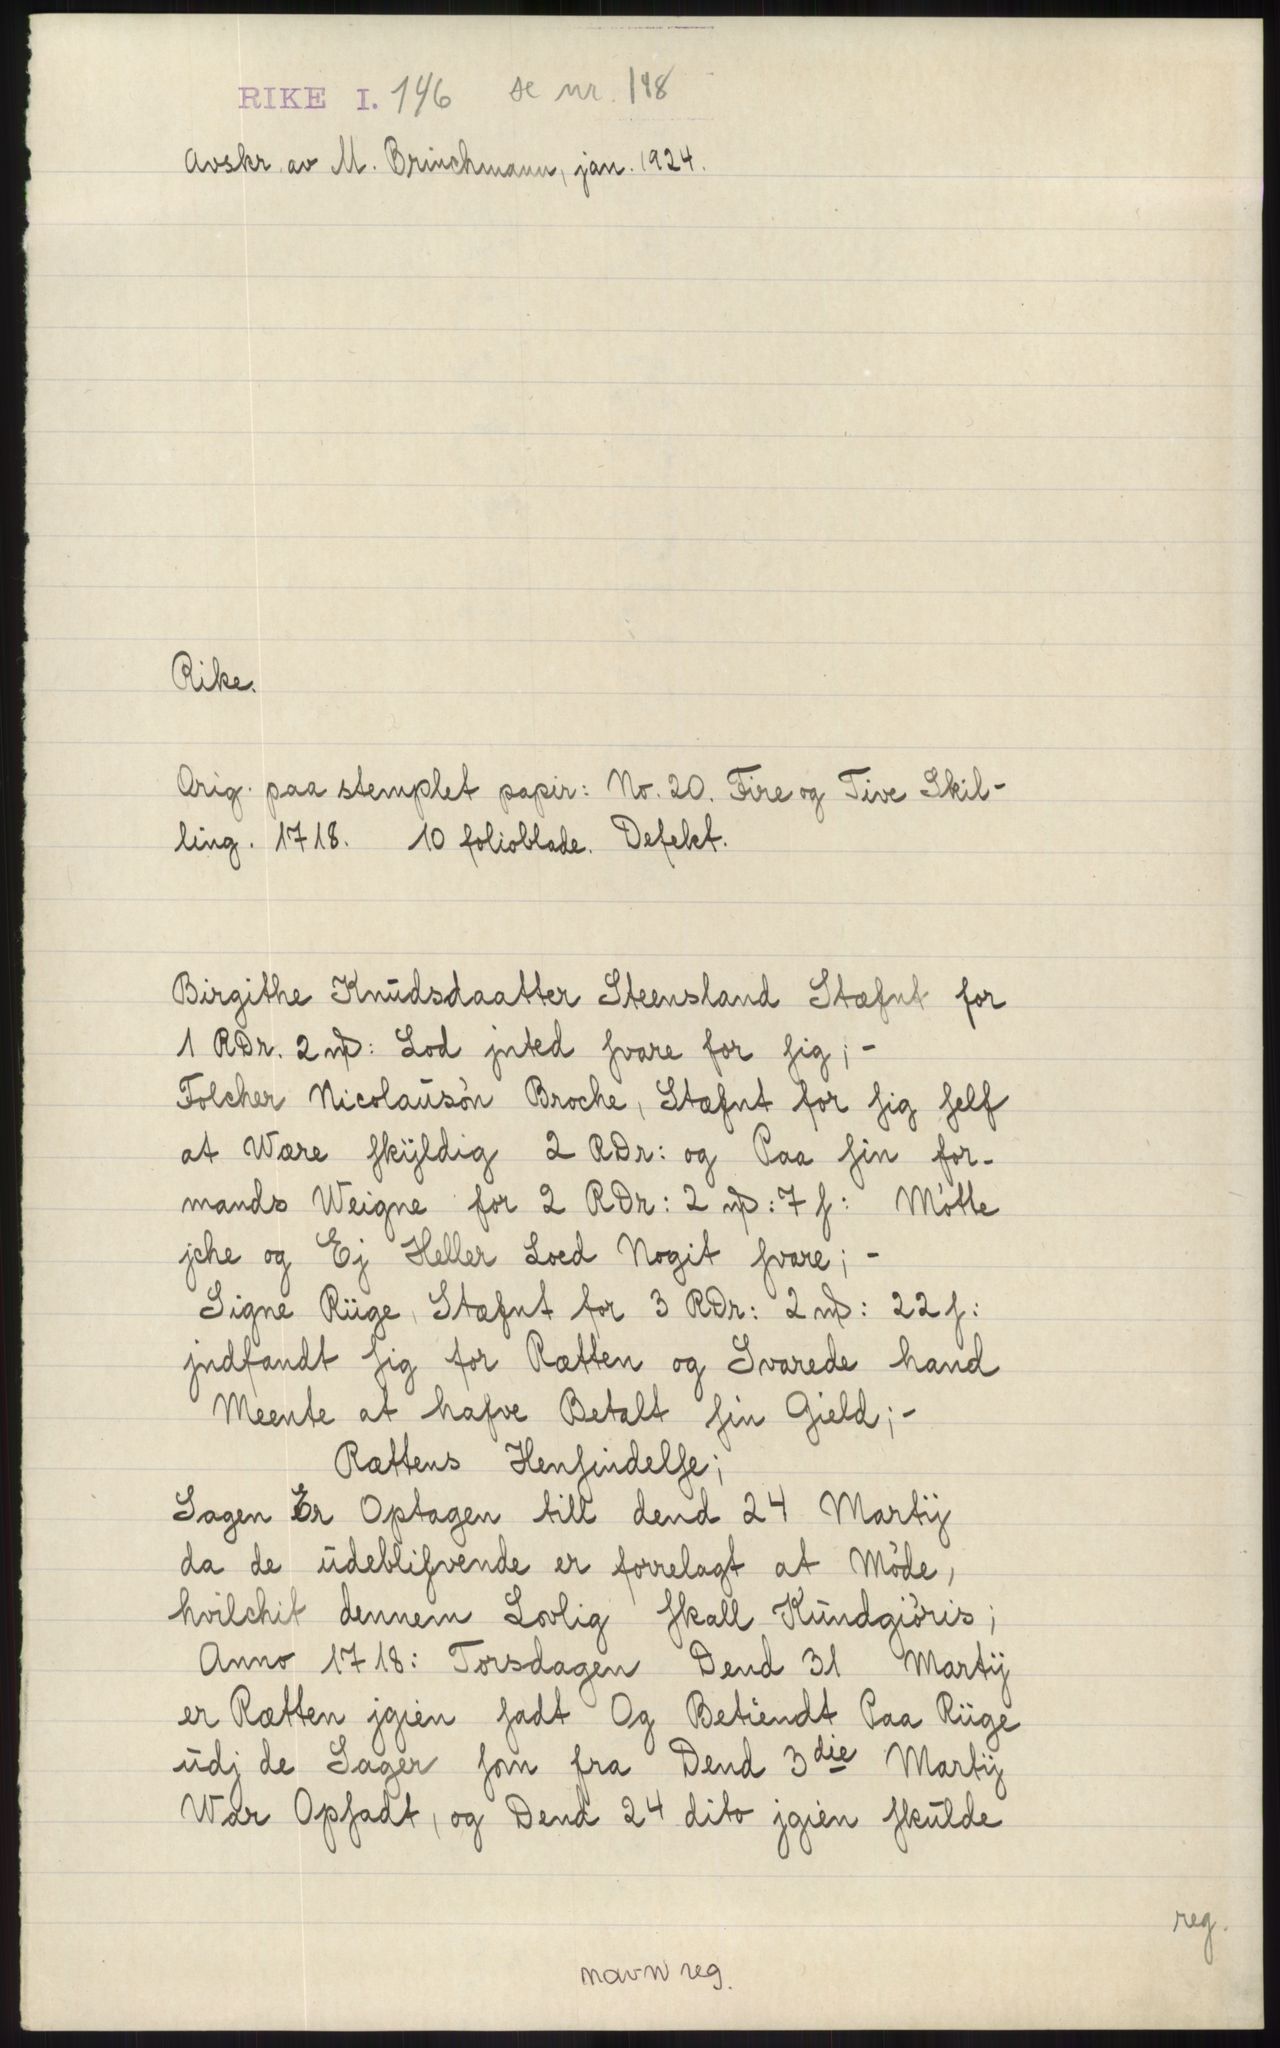 RIKE I. 146 se nr. 148
Avskr. av M. Brinchmann, jan. 1924.
Rike.
Orig. paa stemplet papir: No. 20. Fire og Tive Skil-
ling. 1718. 10 folioblade. Defekt.
Birgithe Knudsdaatter Steensland Stæfnt for
1 RDr. 2 mƥ: Lod jnted svare for sig; -
Folcher Nicolausøn Broche, Stæfnt for sig self
at Wære skÿldig 2 RDr: og Paa sin for-
mands Weigne for 2 RDr: 2 mƥ: 7 s: Møtte
jche og Ej Heller Loed Nogit svare; -
Signe Rüge, Stæfnt for 3 RDr: 2 mƥ: 22 s:
jndfandt sig for Rætten og Svarede hand
Meente at hafve Betalt sin Gield; -
Rættens Hensindelse;
Sagen Er Optagen till dend 24 Martij
da de udeblifvende er forrelagt at Møde,
hvilchit dennem Lovlig skall Kundgiøris;
Anno 1718: Torsdagen Dend 31 Martij
er Rætten jgien sadt Og Betiendt Paa Rüge
udj de Sager som fra Dend 3die Martij
War Opsadt, og Dend 24 dito jgien skulde
reg.
navn reg.